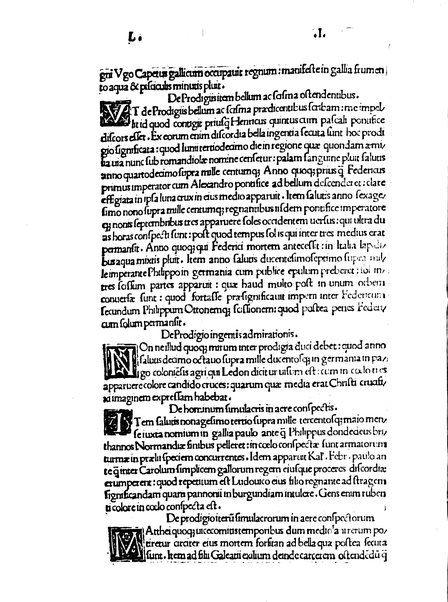 L. .I.
gni Vgo Capetus gallicum occupauit regnum: manifeste in gallia frumen
to aqua & pisciculis minutis pluit.
De Prodigiis item bellum ac scisma ostendentibus.
VT de Prodigiis bellum ac scisma prædicentibus scribam: me impel
lit id quod contigit priusq̃ Henricus quintus cum pascali pontifice
discors esset. Ex eorum enim discordia bella ingentia secuta sunt hoc prodi
gio significata: quod Iunii tertiodecimo die in regione quæ quondam æmi
lia usa nunc sub romandiolæ nomine censetur: palam sanguine pluit salutis
anno quartodecimo supra mille centumq; Anno quoq; prius q̃ Federicus
primus imperator cum Alexandro pontifice ad bellum descenderet: clare
effigiata in ipsa luna crux in eius medio apparuit. Item salutis anno sexage
simo nono supra mille centumq; regnantibus iisdem pontifice imperatore
q; nonis septembribus tres apparuere soles occidentem uersus: qui ultra du
as horas conspecti sunt: post quod tempus sol is qui inter tres medius erat
permansit. Anno quoq; qui Federici mortem antecessit: in Italia lapidi
bus aqua mixtis pluit. Item anno salutis ducentesimoseptimo supra mil
le imperante Philippo in germania cum publice epulum preberet: sol in
tres scissum partes apparuit: quæ haud multo post in unum orbem
conuersæ sunt: quod fortasse præsignificauit impern inter Federicum
secundum Philippum Ottonemq; scissionem: quod postea penes Federi
cum solum permansit.
De Prodigio ingentis admirationis.
NOn ne illud quoq; mirum inter prodigia duci debet: quod anno
salutis decimo octauo supra mille ducentosq; in germania in pa
go coloniensis agri qui Ledon dicitur uisum est: cum in coelo tres
apparuere colore candido cruces: quarum quæ media erat Christi crucifi
xi imaginem expressam habebat.
De hominum simulacris in aere conspectis.
ITem salutis nonagesimo tertio supra mille tercentosq; maio men
se iuxta nomium in gallia paulo ante q̃ Philippus dondedeus bri
thannos Normandiæ finibus pelleret: in coelo conspectæ sunt armatorum
turmæ in prælii speciem concurrentes. Idem apparuit Kal. Febr. paulo an
te q̃ inter Carolum simplicem gallorum regem eiusque proceres discordiæ
erumperent: quod repetitum est Ludouico eius filio regnante ad stragem
significandam quam pannonii in burgundiam intulere. Gens enim ruben
ti colore in coelo conspecta est.
De prodigio iterũ simulacrorum in aere conspectorum
MAtthei quoq; uicecomitis temporibus dum mediolani rerum po
tiretur circiter eius mortem forsitan ad bella qua postea secuta
sunt. Item ad filii Galeatii exilium deinde carcerem ostendēdũ q̃